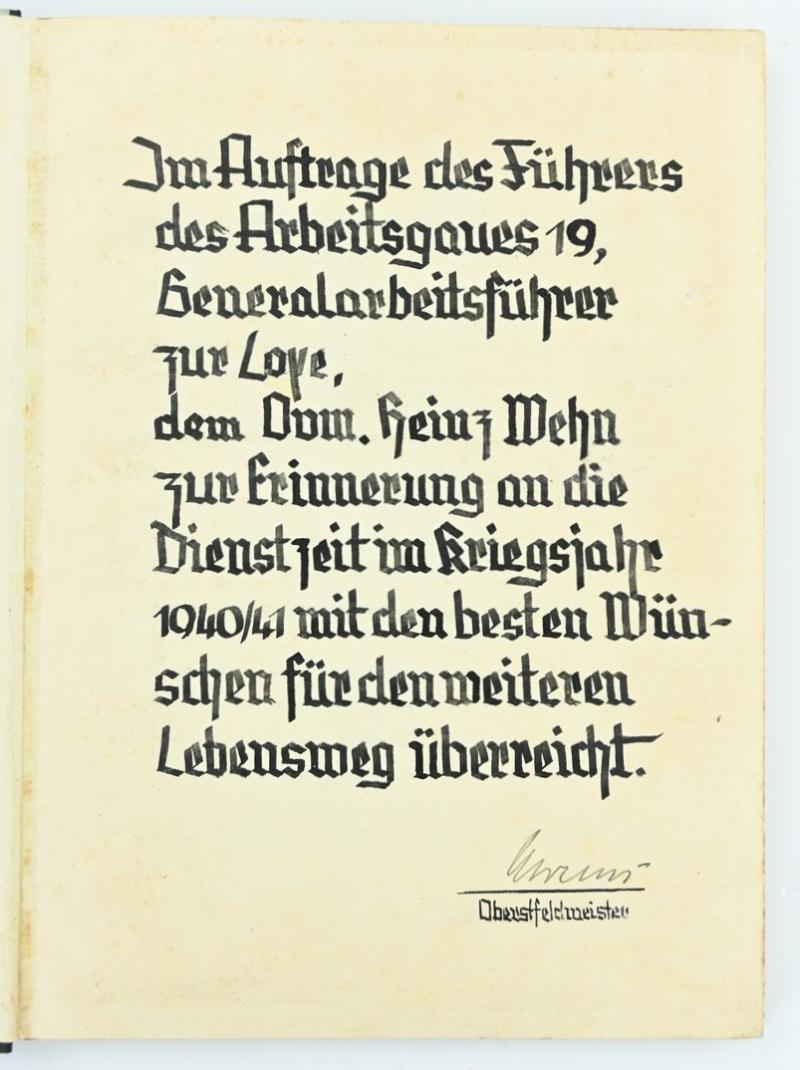 Im Auftrage des Führers
des Arbeitsgaues 19,
Generalarbeitsführer
zur Loye,
dem Ovm. Heinz Wehn
zur Erinnerung an die
Dienstzeit im Kriegsjahr
1940/41 mit den besten Wün-
schen für den weiteren
Lebensweg überreicht.
Oberstfeldmeister